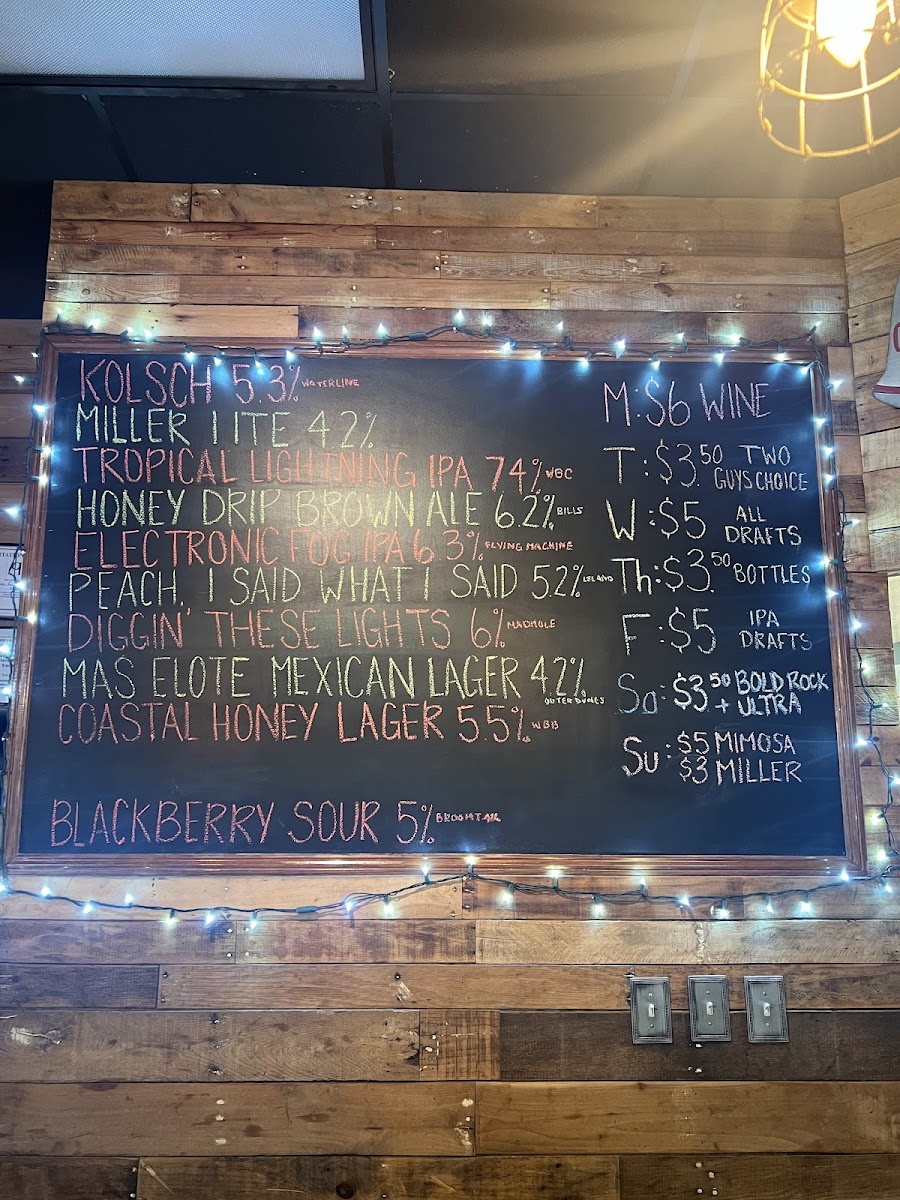 KOLSCH 5.3% WATERLINE
MILLER LITE 4.2%
TROPICAL LIGHTNING IPA 74% WBC
HONEY DRIP BROWN ALE 6.2% BILLS
ELECTRONIC FOG IPA 6 3% FLYING MACHINE
PEACH, I SAID WHAT I SAID 52% LELAND
DIGGIN' THESE LIGHTS 6% MADMOLE
MAS ELOTE MEXICAN LAGER 4.2% OUTER DUNES
COASTAL HONEY LAGER 55% WBB
BLACKBERRY SOUR 5%
M: $6 WINE
T: $3.50 TWO GUYS CHOICE
W: $5 ALL DRAFTS
Th: $3.50 BOTTLES
F: $5 IPA DRAFTS
Sa: $3 50 BOLD ROCK + ULTRA
Su: $5 MIMOSA
$3 MILLER